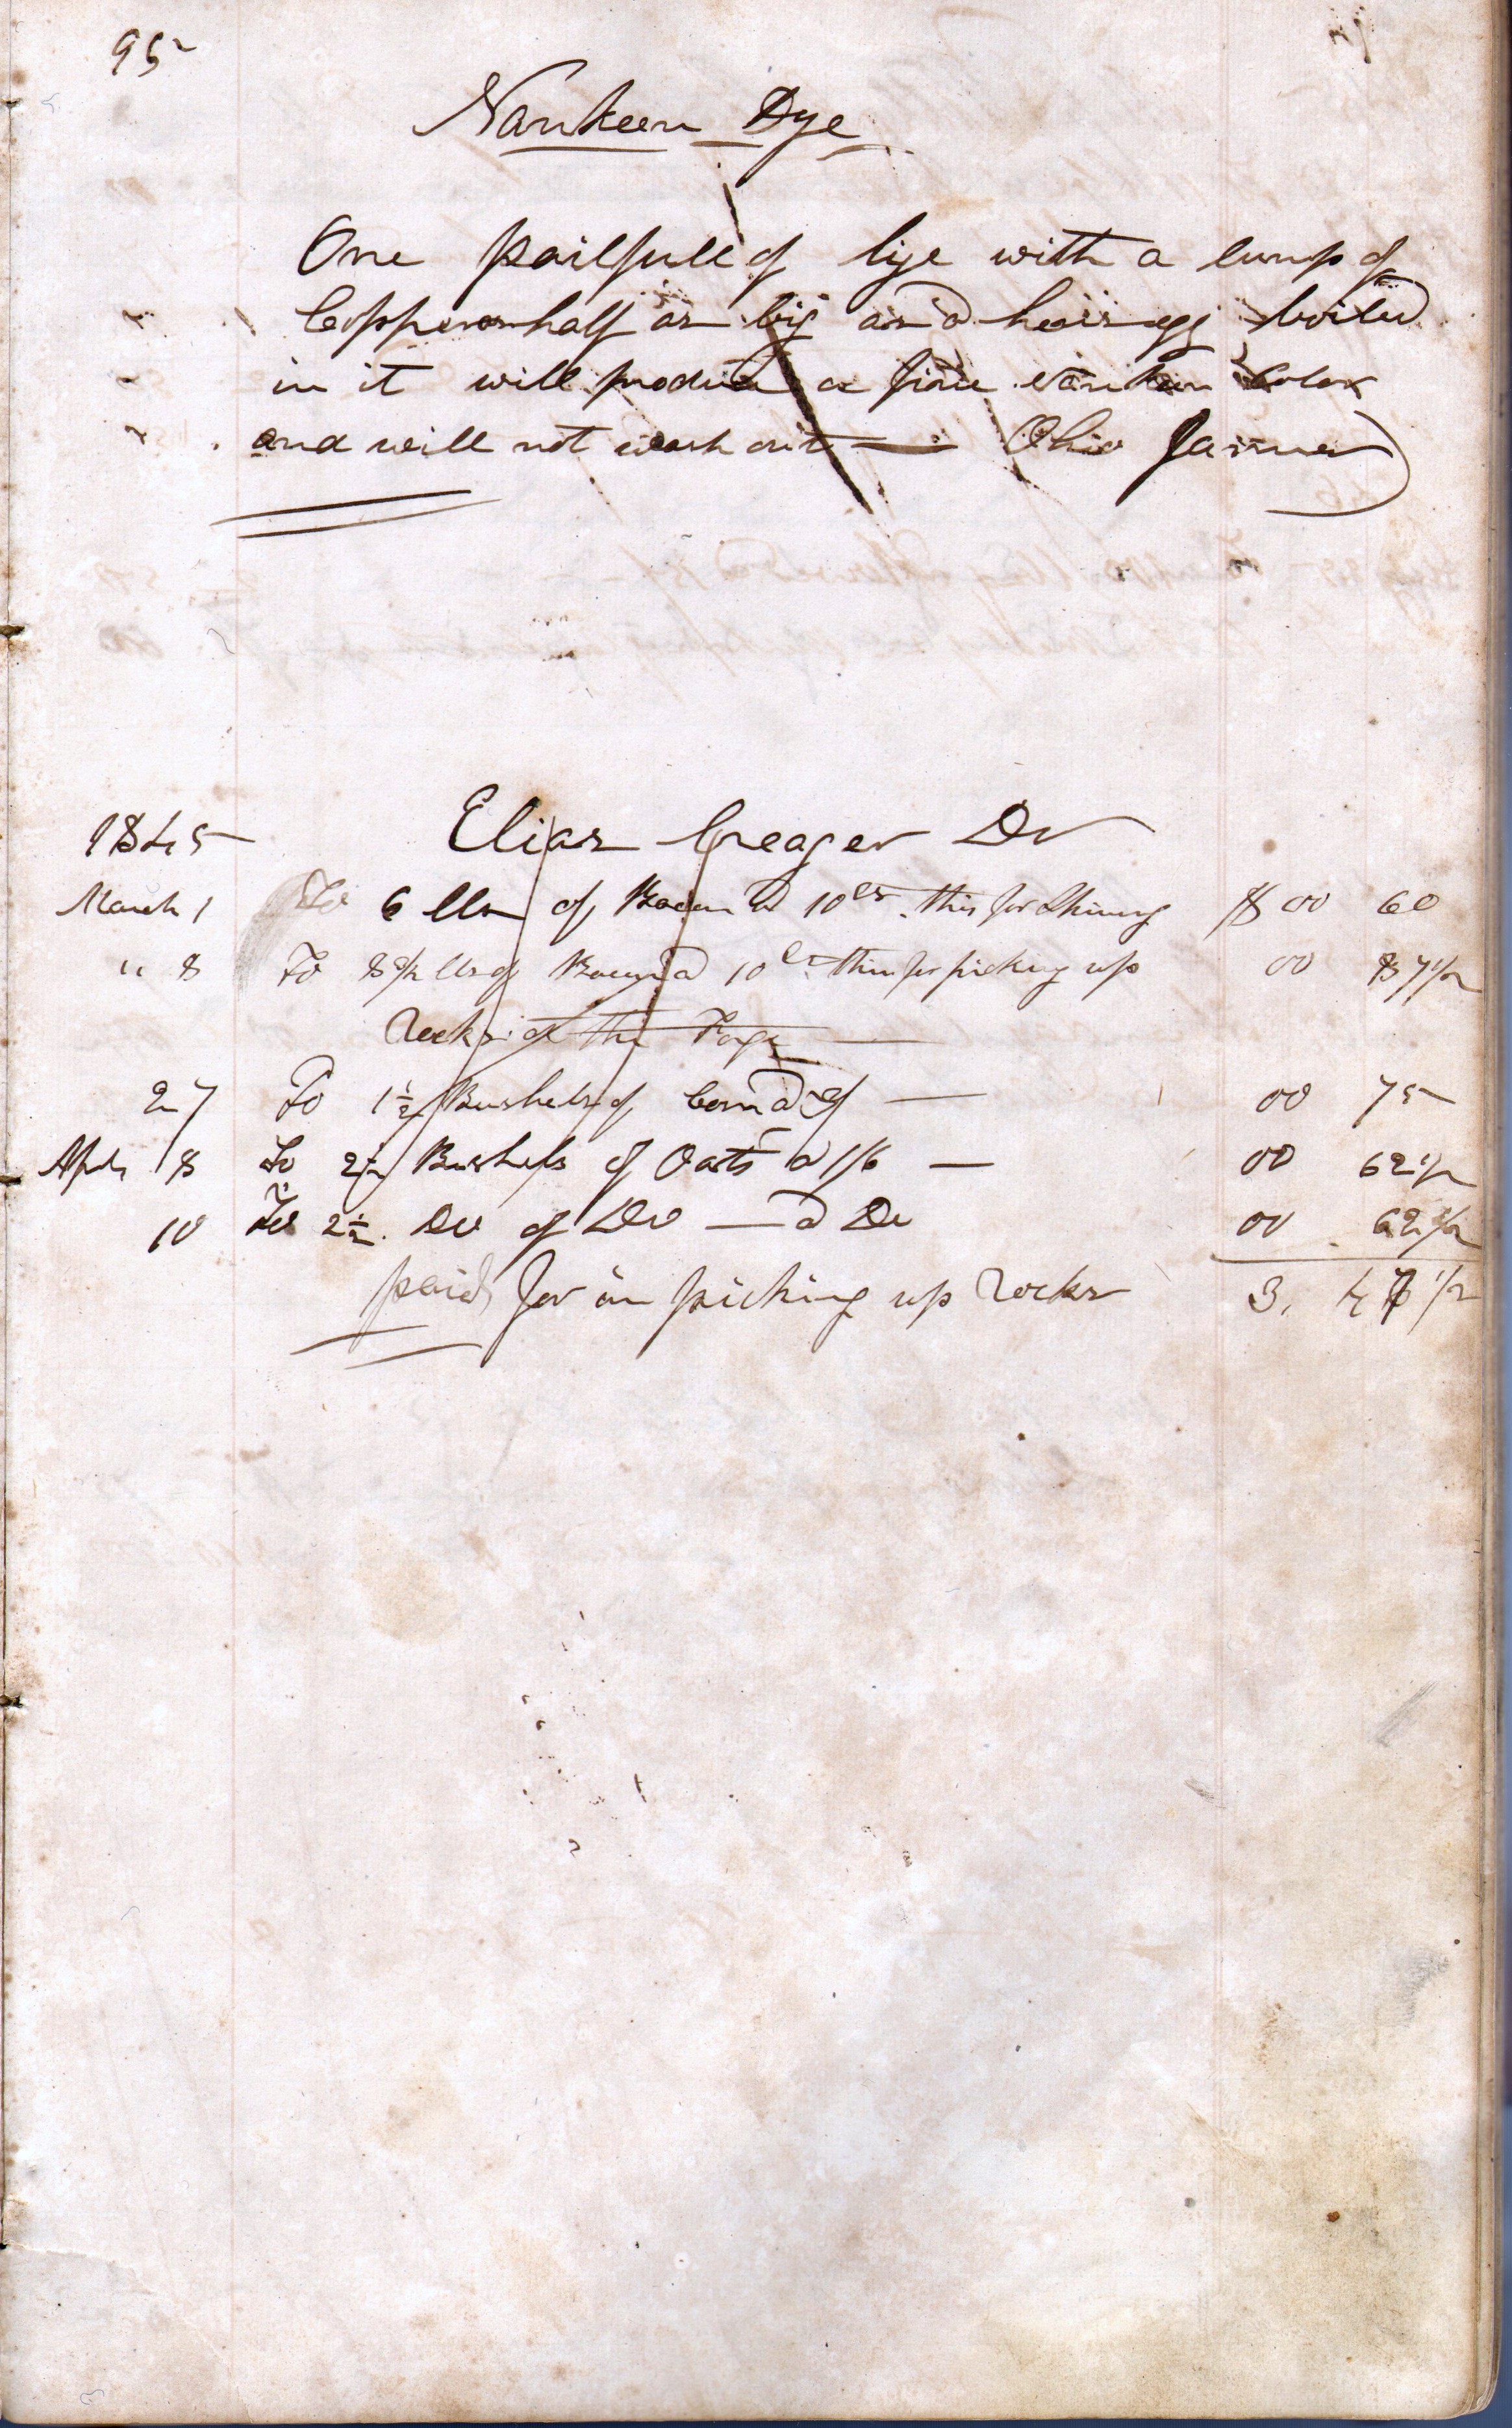 95
Nankeen Dye
One pailfull of lye with a lump of
Copperas half as big as a hens egg boiled
in it will produce a fine Nankeen Color
and will not wash out — Ohio Farmer
1845 Elias Creager Dr
March 1 To 6 lbs of Bacon a 10 cts this for $ 00 60
" 8 To 8 3/4 lbs of Bacon a 10 cts this for picking up 00 87 1/2
Rocks at the Forge —
27 To 1 1/2 Bushels of Corn a — 00 75
Apr 8 To 2 1/2 Bushels of Oats a 1/6 — 00 62 1/2
10 To 2 1/2 Do of Do — a Do 00 62 1/2
paid for in picking up Rocks 3, 47 1/2